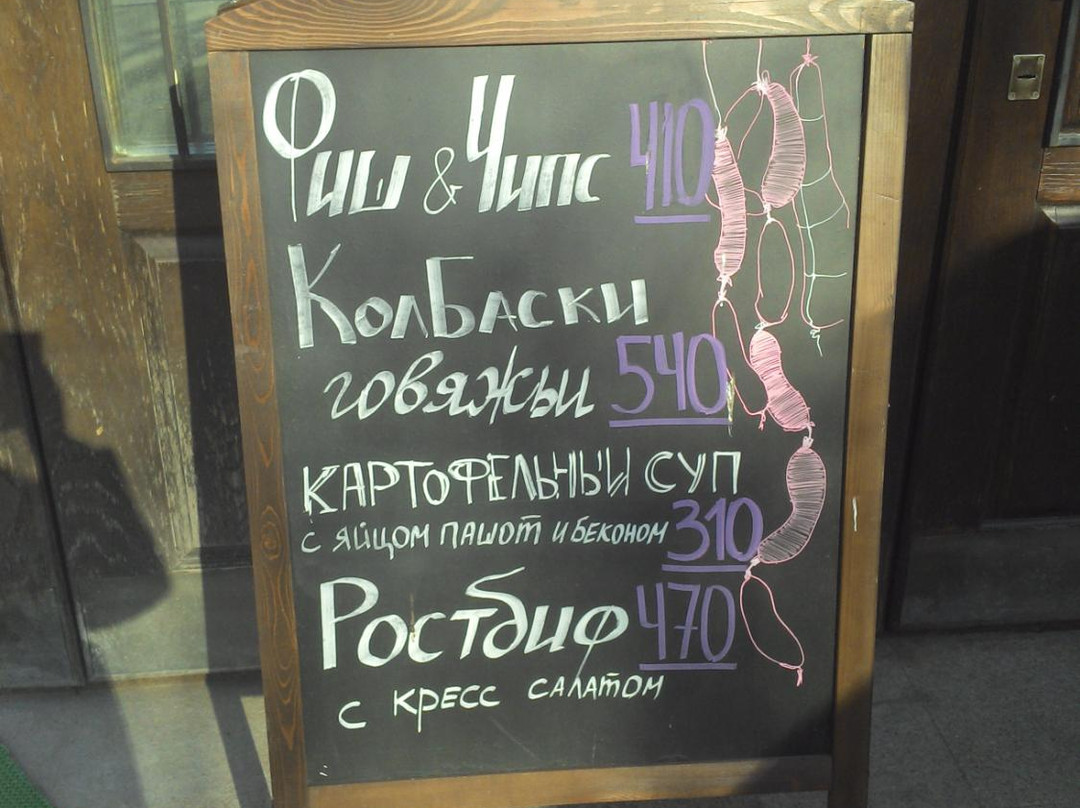 Фиш & Чипс 410
Колбаски
говяжьи 540
КАРТОФЕЛЬНЫЙ СУП
с яйцом пашот и беконом 310
Ростбиф 470
с кресс салатом